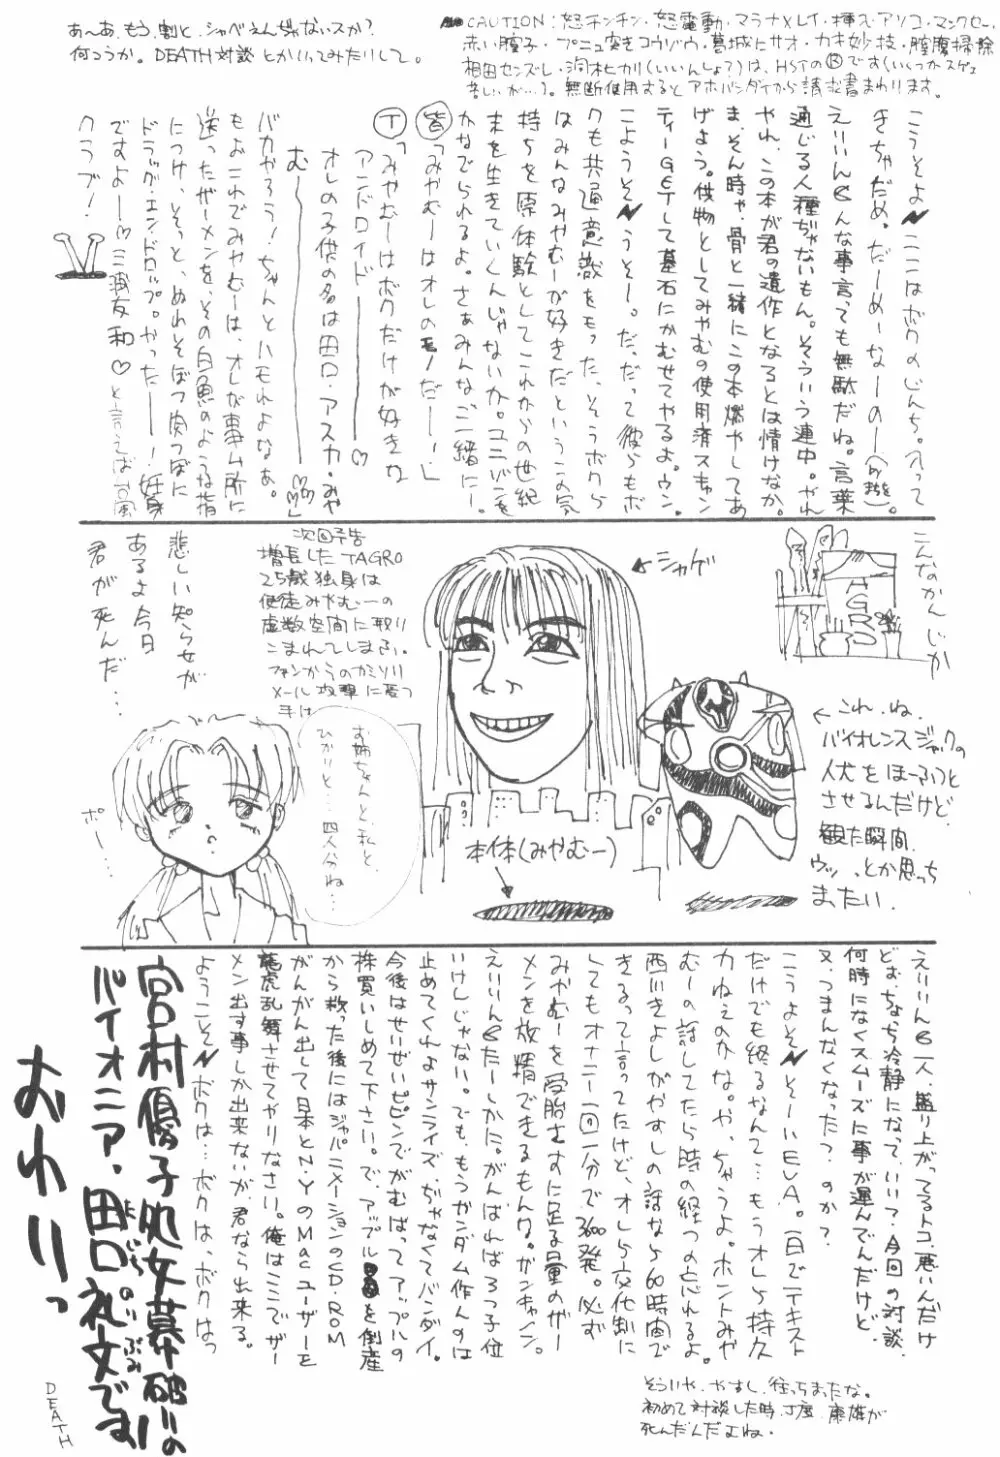 あ〜あ、もう、割と、シャベえんぢゃないスか?
何つうか。DEATH対談とかいってみたりして。
相田センズレ・洞木ヒカリ(いいんしょて)は、HSTの®です(いくつかスゲェ
苦しいが…)。無断使用するとアホバンダイから請求書まわります。
こうそよ ここはボクのじんち。入って
きちゃだめ。だーめーなーのー
えいいんらんな事言っても無駄だね。言葉
通じる人種ぢゃないもん。そういう連中。やれ
やれ、この本が君の遺作となるとは情けなか。
ま、そん時ゃ、骨と一緒にこの本燃やしてあ
げよう。供物としてみやむの使用済スキャン
ティーGETして墓石にかむせてやるよ。ウン。
こようそ うそー。だ、だって彼らもボ
クも共通意識をもった、そうボクら
はみんなみやむーが好きだというこの気
持ちを原体験としてこれからの世紀
末を生きていくんじゃないか。ユニバンを
かなでられるよ。さぁみんなご一緒にー。
皆「みやむーはオレのモノだーー!」
T「みやむーはボクだけが好きな
アンドロイドーーー♡
オレの子供の名は田口・アスカ・みや
むーーーー♡♡♡」
バカやろう!ちゃんとハモれよなぁ。
もぉこれでみやむーは、オレが事ム所に
送ったザーメンを、その白魚のような指
につけ、そっと、ぬれそぼつ肉つぼに
ドラッグ・エンドロップ。やったーー!妊娠
ですよーー♡三浦友和♡と言えば台風
クラブ!
こんなかんじか
TAGRO
←シャゲ
次回予告
増長したTAGRO
25歳独身は
使徒みやむーの
虚数空間に取り
こまれてしまふ。
ファンからのカミソリ
メール攻撃に憂つ
手は
悲しい知らせが
あるよ今日
君が死んだ…
お姉ちゃんと、私と、
ひかりと… 四人分ね…
ポー……
本体(みやむー)
←これ、ね、
バイオレンスジャックの
人犬をほーふつと
させるんだけど、
観た瞬間、
ウッ…、とか思っち
まったい。
えいいんら一人、盛り上がってるトコ、悪いんだけ
どぉ、なら冷静になって、いいて、今回の対談、
何時になくスムーズに事が運んでんだけど、
又、つまんなくなったっ?のか?
こうよそ そーいいEVA。一日でテキスト
だけでも終るなんて…もうオレら持久
力ねえのかな。や、ちゃうよ。ホントみや
むーの話してたら時の経つの忘れるよ。
西川きよしがやすしの話なら60時間で
きるって言ってたけど、オレら交代制に
してもオナニー一回一分で3600発。必ず
みやむーを受胎むすに足る量のザー
メンを放精できるもんク。ガンキャノン。
えいいんらたーしかに。がんばれば3つ子位
いけしじゃない。でも、もうガンダム作んのは
止めてくれよサンライズ、ぢゃなくてバンダイ。
今後はせいぜいピピンでがむばってアップルの
株買いしめて下さい。で、アプブルを倒産
から救った後にはジャパニメーションのCD-ROM
がんがん出して日本とN・YのMacユーザーを
龍虎乱舞させてやりなさい。俺はここでザー
メン出す事しか出来ないが、君なら出来る。
ようこそ ボクは…ボクは、ボクはっ
そういや、やすし、往っちまったな。
初めて対談した時、丁度、康雄が
死んだんだよね。
宮村優子処女幕破りの
パイオニア・田口礼文です
おわりっ
DEATH